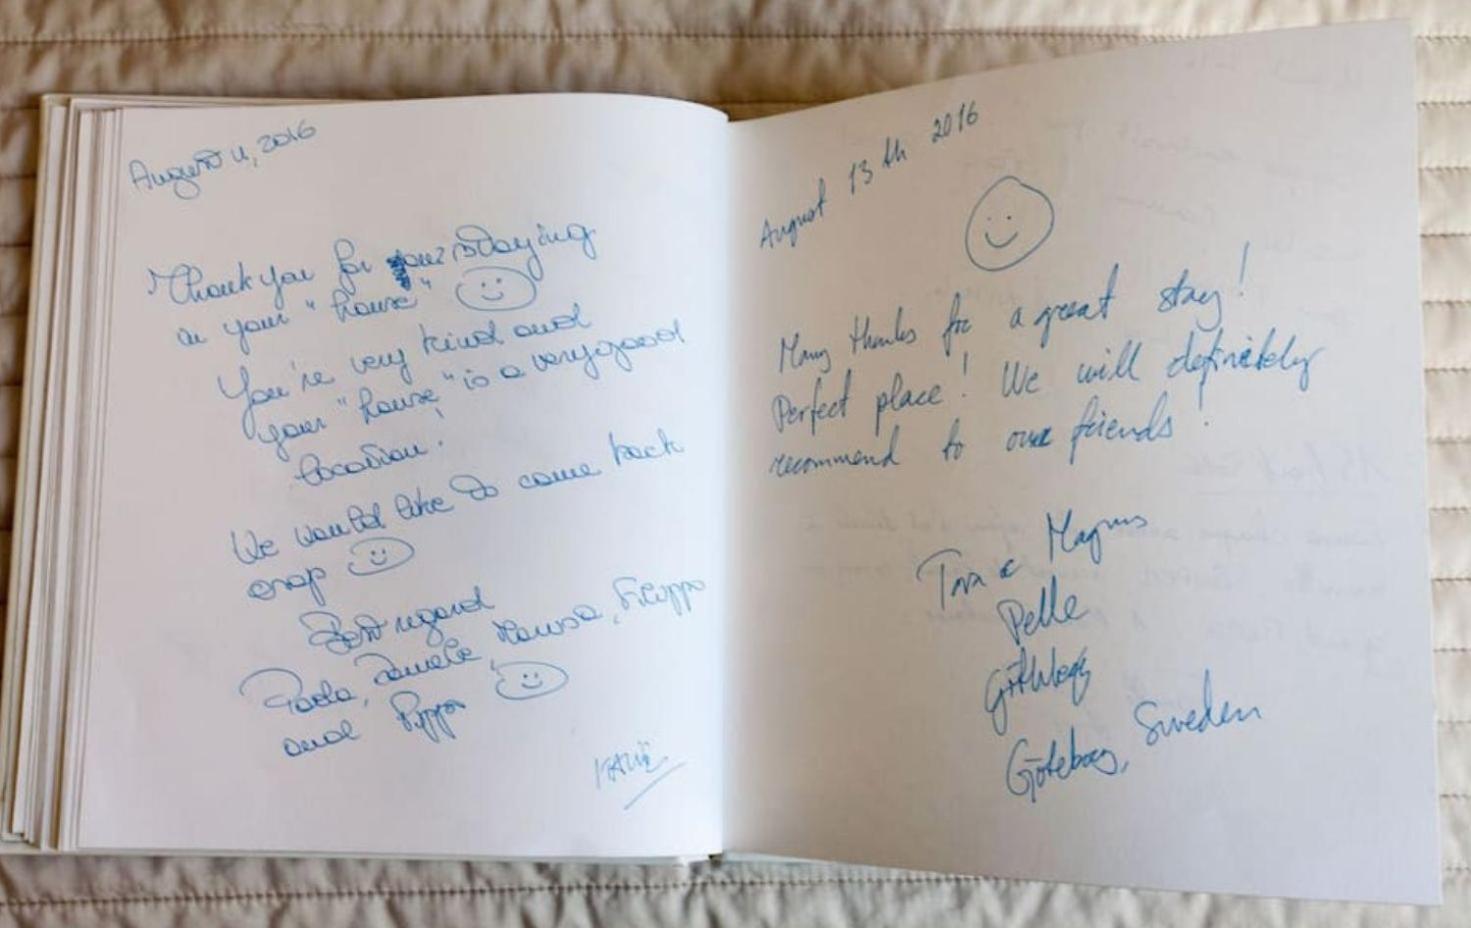 August 4, 2016
Thank you for our staying
in your "house"
You're very kind and
your "house" is a very good
location.
We would like to come back
asap
Best regard
Paola, Daniele, Filippo
and Pippo
August 13th 2016
Many thanks for a great stay!
Perfect place! We will definitely
recommend to our friends!
Magnus
Pelle
Göteborg, Sweden